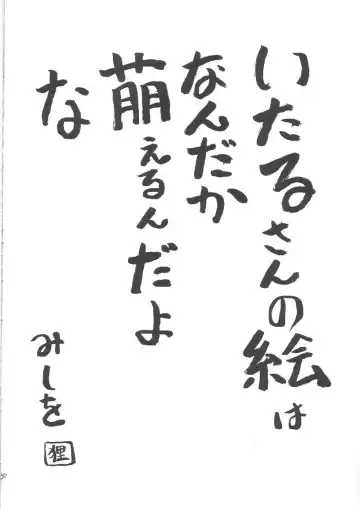 いたるさんの絵は
なんだか
萠えるんだよ
な
みしを
狸